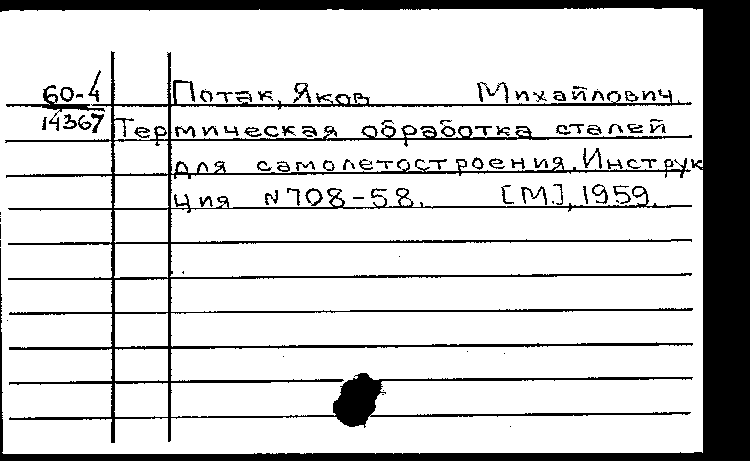 60-4 Потак, Яков Михайлович.
14367 Термическая обработка сталей
для самолетостроения. Инструк
ция N708-58. [М.], 1959.